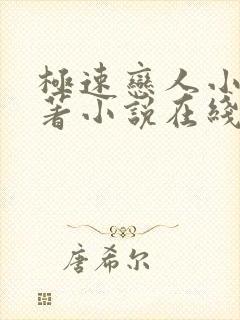 極速戀人小
著小説在綫
唐希尔